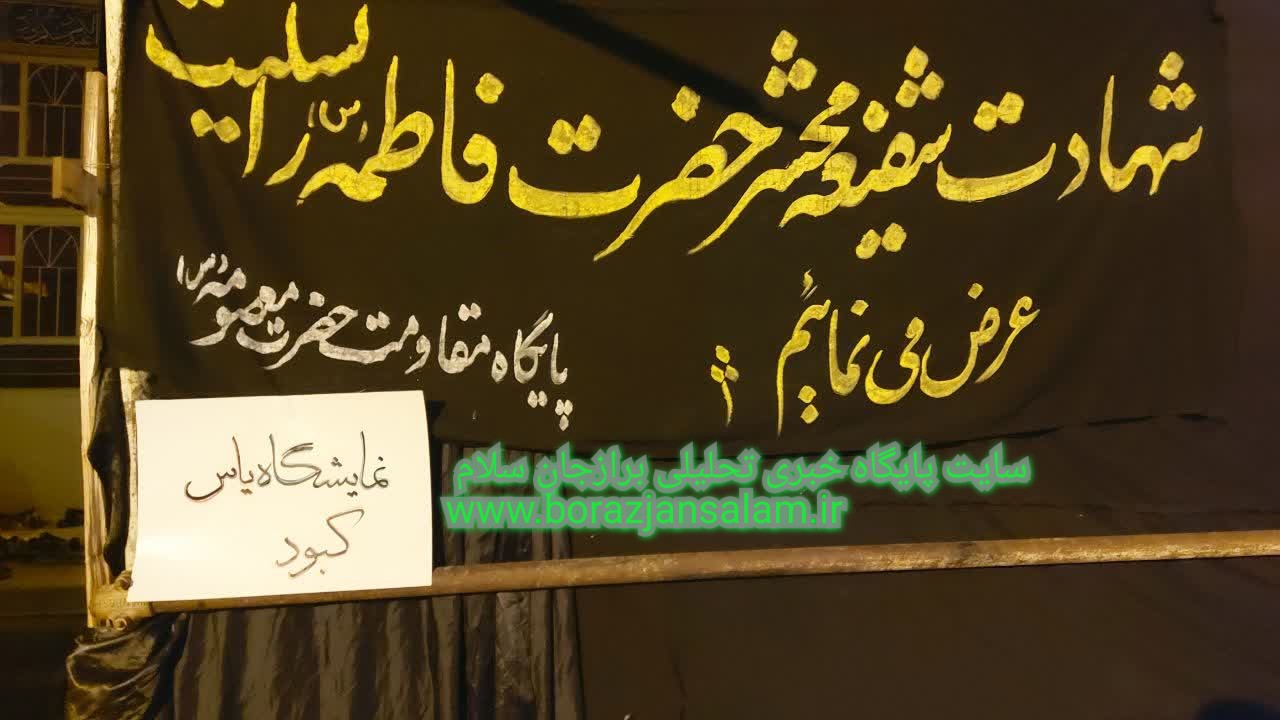 شهادت شفیعه محشر حضرت فاطمه (س) را تسلیت
عرض می نماییم
پایگاه مقاومت حضرت معصومه (س)
نمایشگاه یاس
کبود
سایت پایگاه خبری تحلیلی برازجان سلام
www.borazjansalam.ir